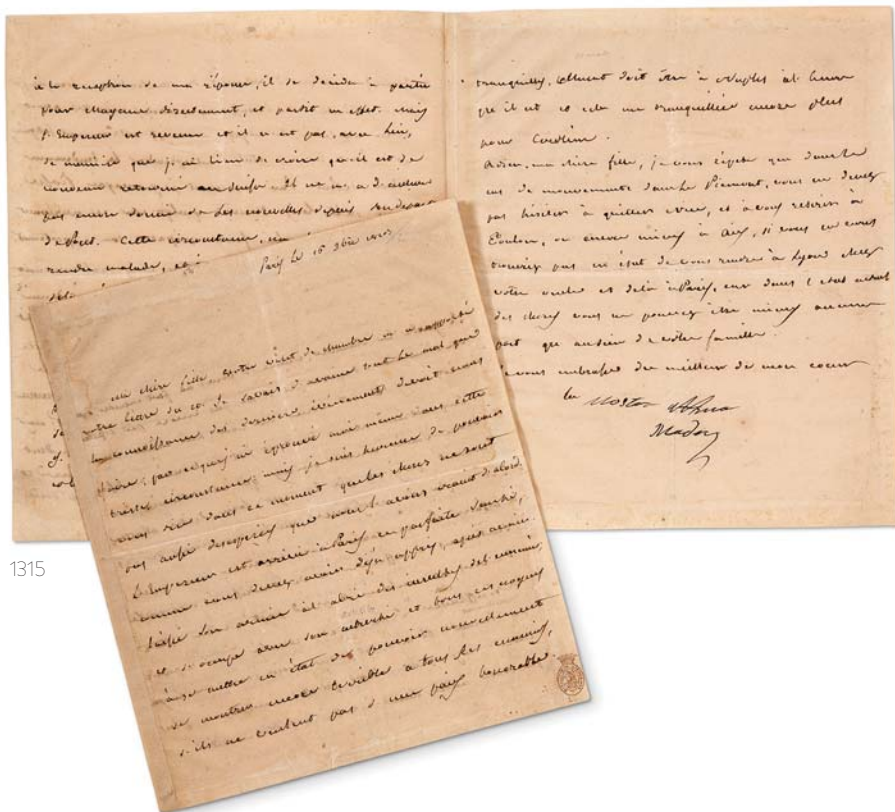 à la reception de ma réponse, il se décida à partir
pour Mayence directement, et partit en effet. Mais
l'Empereur est revenu et il n'est pas avec lui,
de manière que j'ai lieu de croire qu'il est de
nouveau retourné Il ne m'a d'ailleurs
pas encore donné de ses nouvelles depuis son départ
Cette circonstance,
rendre malade,
tranquille, doit être à Naples à l'heure
qu'il est et cela me tranquillise encore plus
pour Caroline.
Adieu, ma chère fille, je vous répète que dans le
cas de mouvements dans le Piémont, vous ne devez
pas hésiter à quitter Nice, et à vous retirer à
Toulon, ou encore mieux à Aix, si vous ne vous
trouviez pas en état de vous rendre à Lyon chez
votre oncle et delà à Paris, car dans l'état actuel
des choses vous ne pouvez être mieux aucune
part que au sein de votre famille.
Je vous embrasse du meilleur de mon coeur
Madre
Paris le 16 9bre
Ma chère fille, votre valet de chambre m'a apporté
votre lettre du Je savais d'avance tout le mal que
la connoissance des derniers évènements devoit vous
faire, par ce que j'ai éprouvé moi même dans cette
triste circonstance; mais je suis heureuse de pouvoir
vous dire dans ce moment que les choses ne sont
pas aussi désespérées que nous l'avions craint d'abord.
L'Empereur est arrivé à Paris en parfaite santé,
comme vous devez avoir déjà appris, après avoir
laissé son armée à l'abri des insultes des ennemis,
et s'occupe avec son activité et tous ses moyens
à se mettre en état de pouvoir nouvellement
se montrer encore terrible à tous ses ennemis,
s'ils ne veulent pas d'une paix honorable.
1315